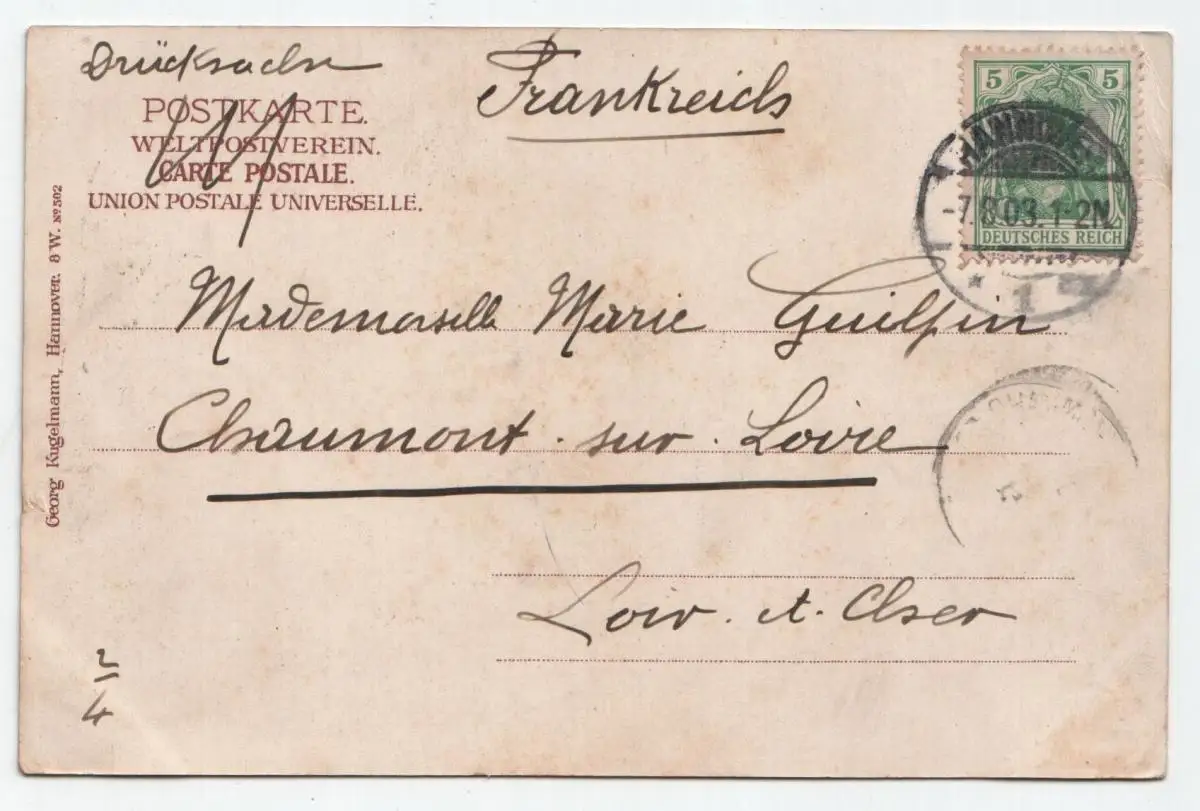 Drücksache
Frankreich
POSTKARTE.
WELTPOSTVEREIN.
CARTE POSTALE.
UNION POSTALE UNIVERSELLE.
5 5
DEUTSCHES REICH
HANNOVER
-7.8.03.1-2N.
1
Mademoiselle Marie Guilpin
Chaumont-sur-Loire
Loir et Cher
2
4
Georg Kugelmann, Hannover. 8 W. No 502